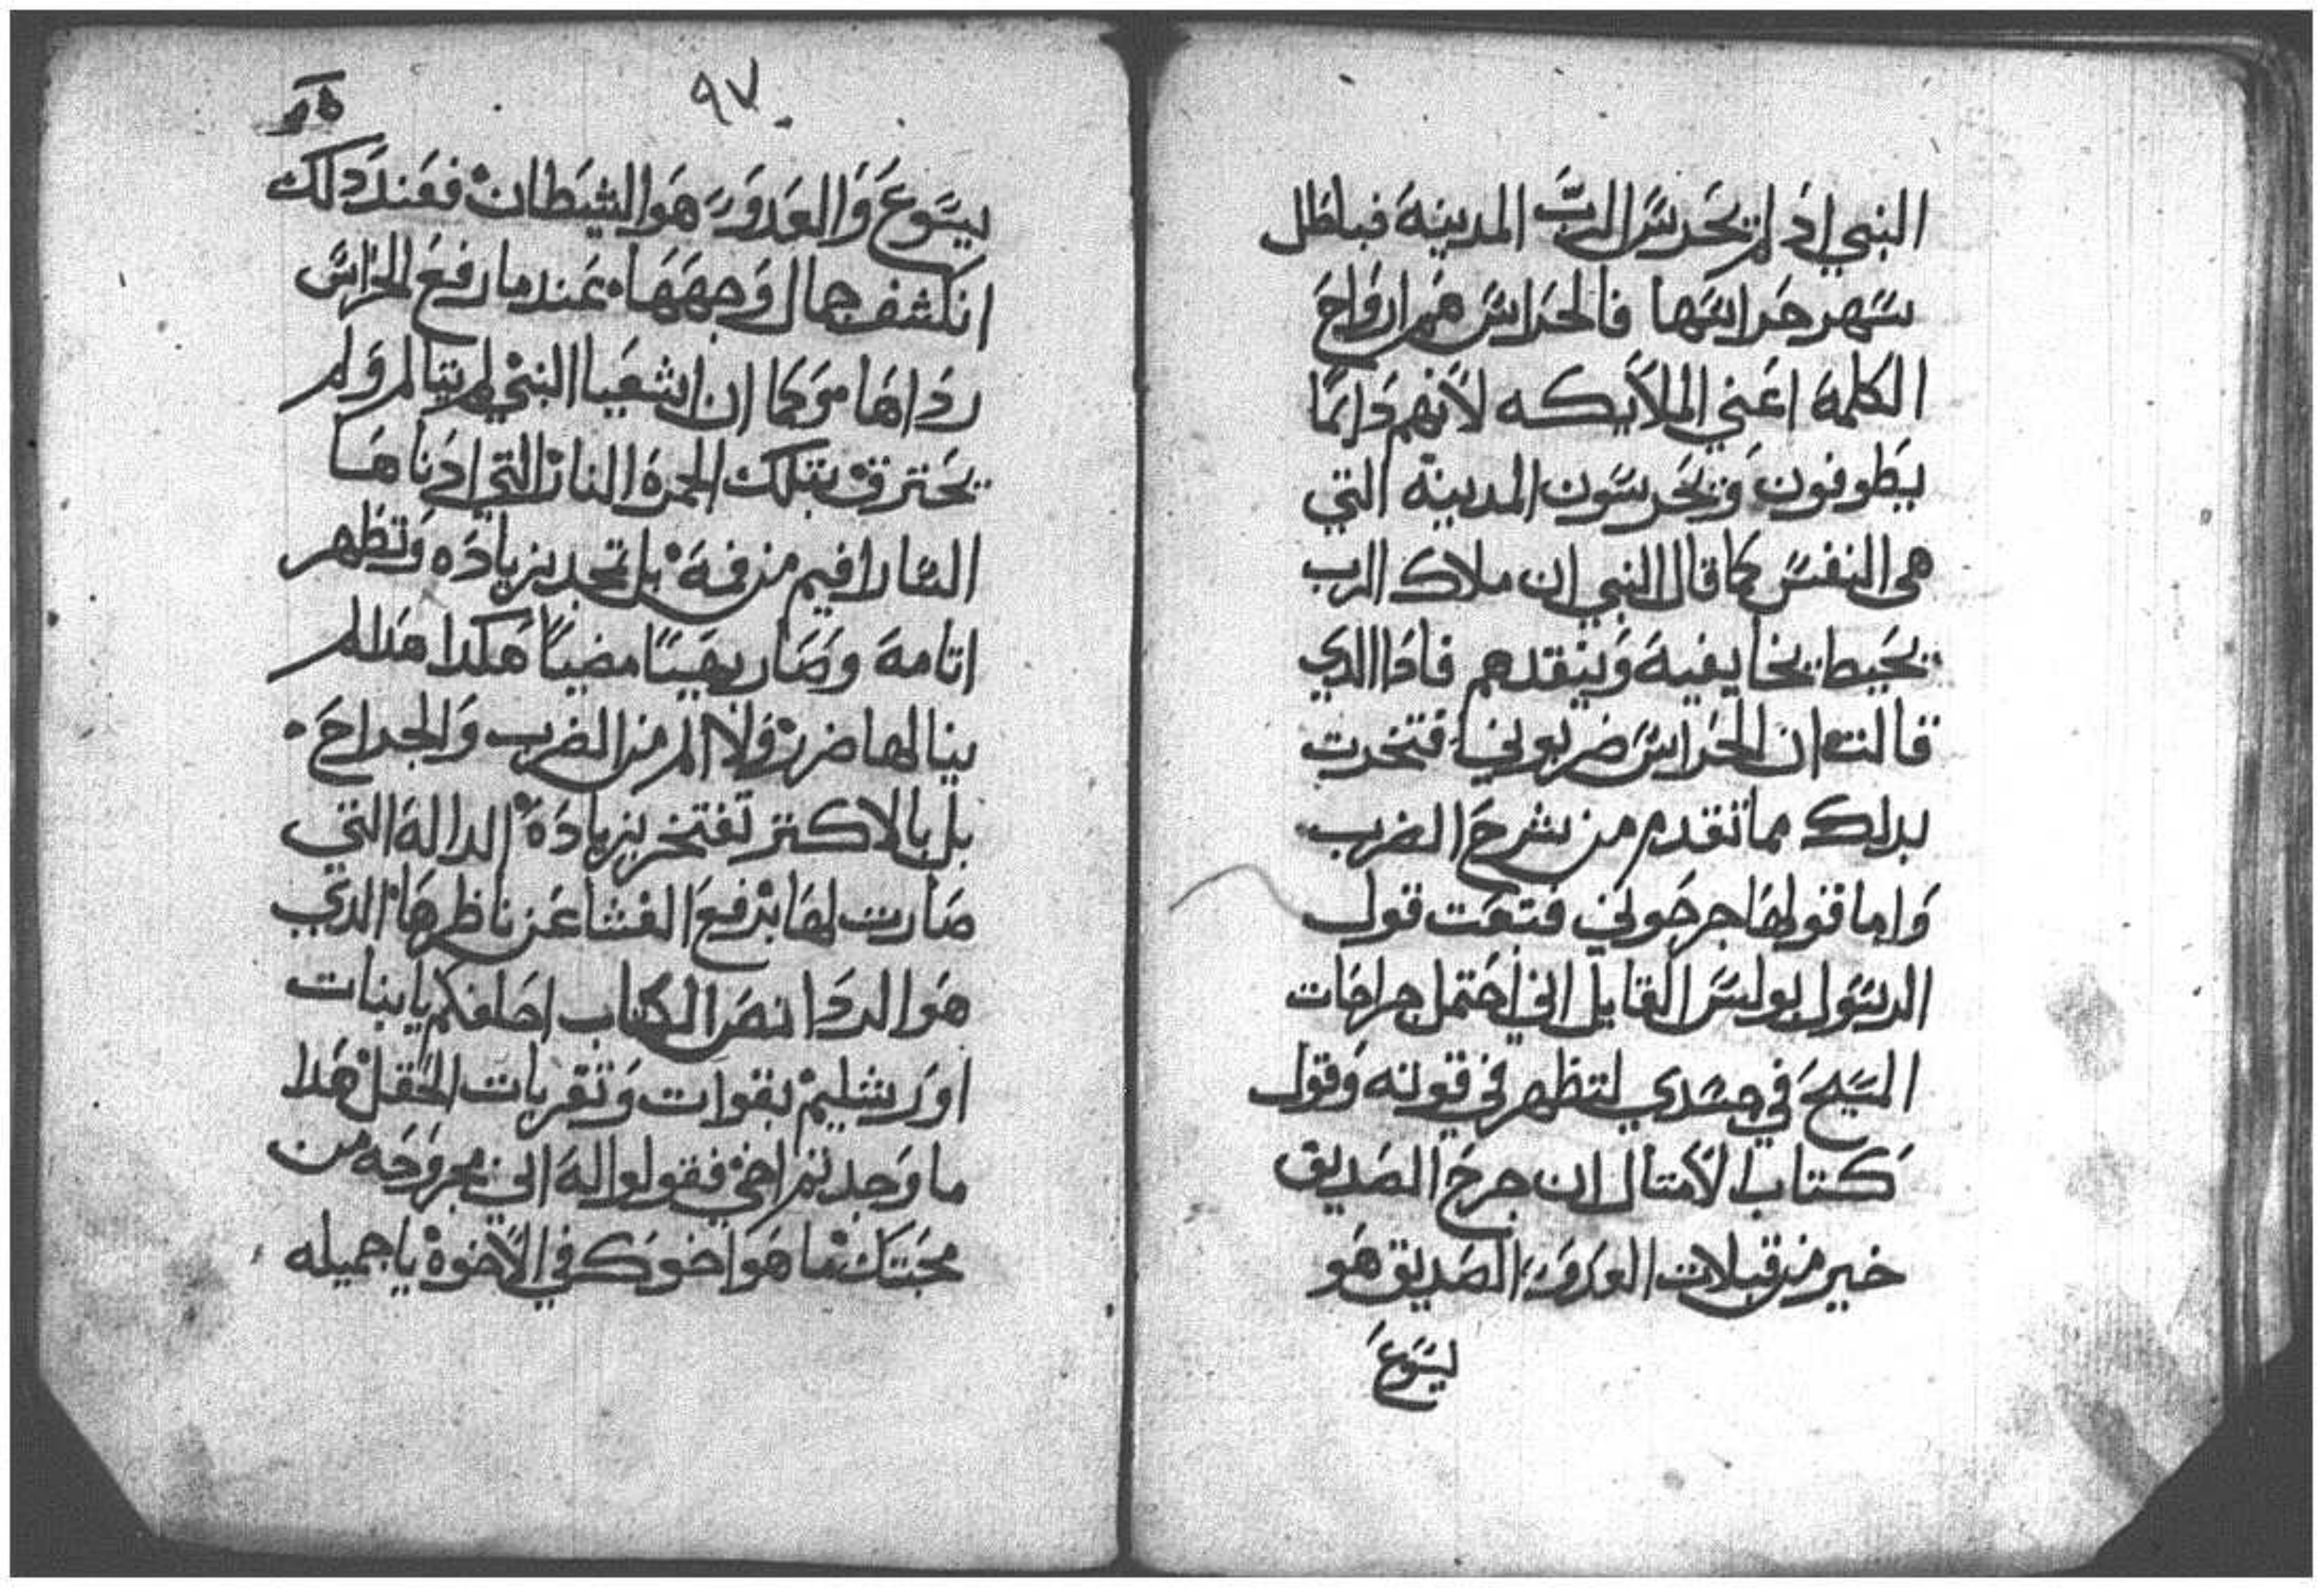 النبي اذ لم يحرس الرب المدينة فباطل
سهر حراسها فالحراس هم ارواح
الكلمة اعني الملايكه لانهم دايما
يطوفون ويحرسون المدينة التي
هي النفس كما قال النبي ان ملاك الرب
يحيط بخايفية وينقدهم فادا الدي
قالته ان الحراس ضربوني افتخرت
بدلك مما تقدم من شرح الضرب
واما قولها جرحوني فتبعت قول
الرسول بولس القايل اني احتمل جراحات
المسيح في جسدي لتظهر في قوته وقول
كتاب الامتال ان جرح الصديق
خير من قبلات العدو الصديق هو
يسوع
٩٧
يسوع والعدو هو الشيطان فعند دلك
انكشف جمال وجهها عندما رفع الحراس
رداها وكما ان اشعيا النبي لم يتالم ولم
يحترق بتلك الجمرة النار التي ادناها
السارافيم من فمة بل تجد بزياده وتظهر
اتامة وصار بهيا مضيا هكدا هده لم
ينالها ضرر ولا الم من الضرب والجراح
بل بالاكتر تفتخر بزيادة الدالة التي
صارت لها برفع الغشا عن ناظرها الدي
هو الردا نص الكتاب احلفكم يا بنات
اورشليم بقوات وتقريات الحقل هدا
ما وجدتم اخي فقولوا لة اني مجروحه من
محبتك ما هو اخوك في الاخوة يا جميله